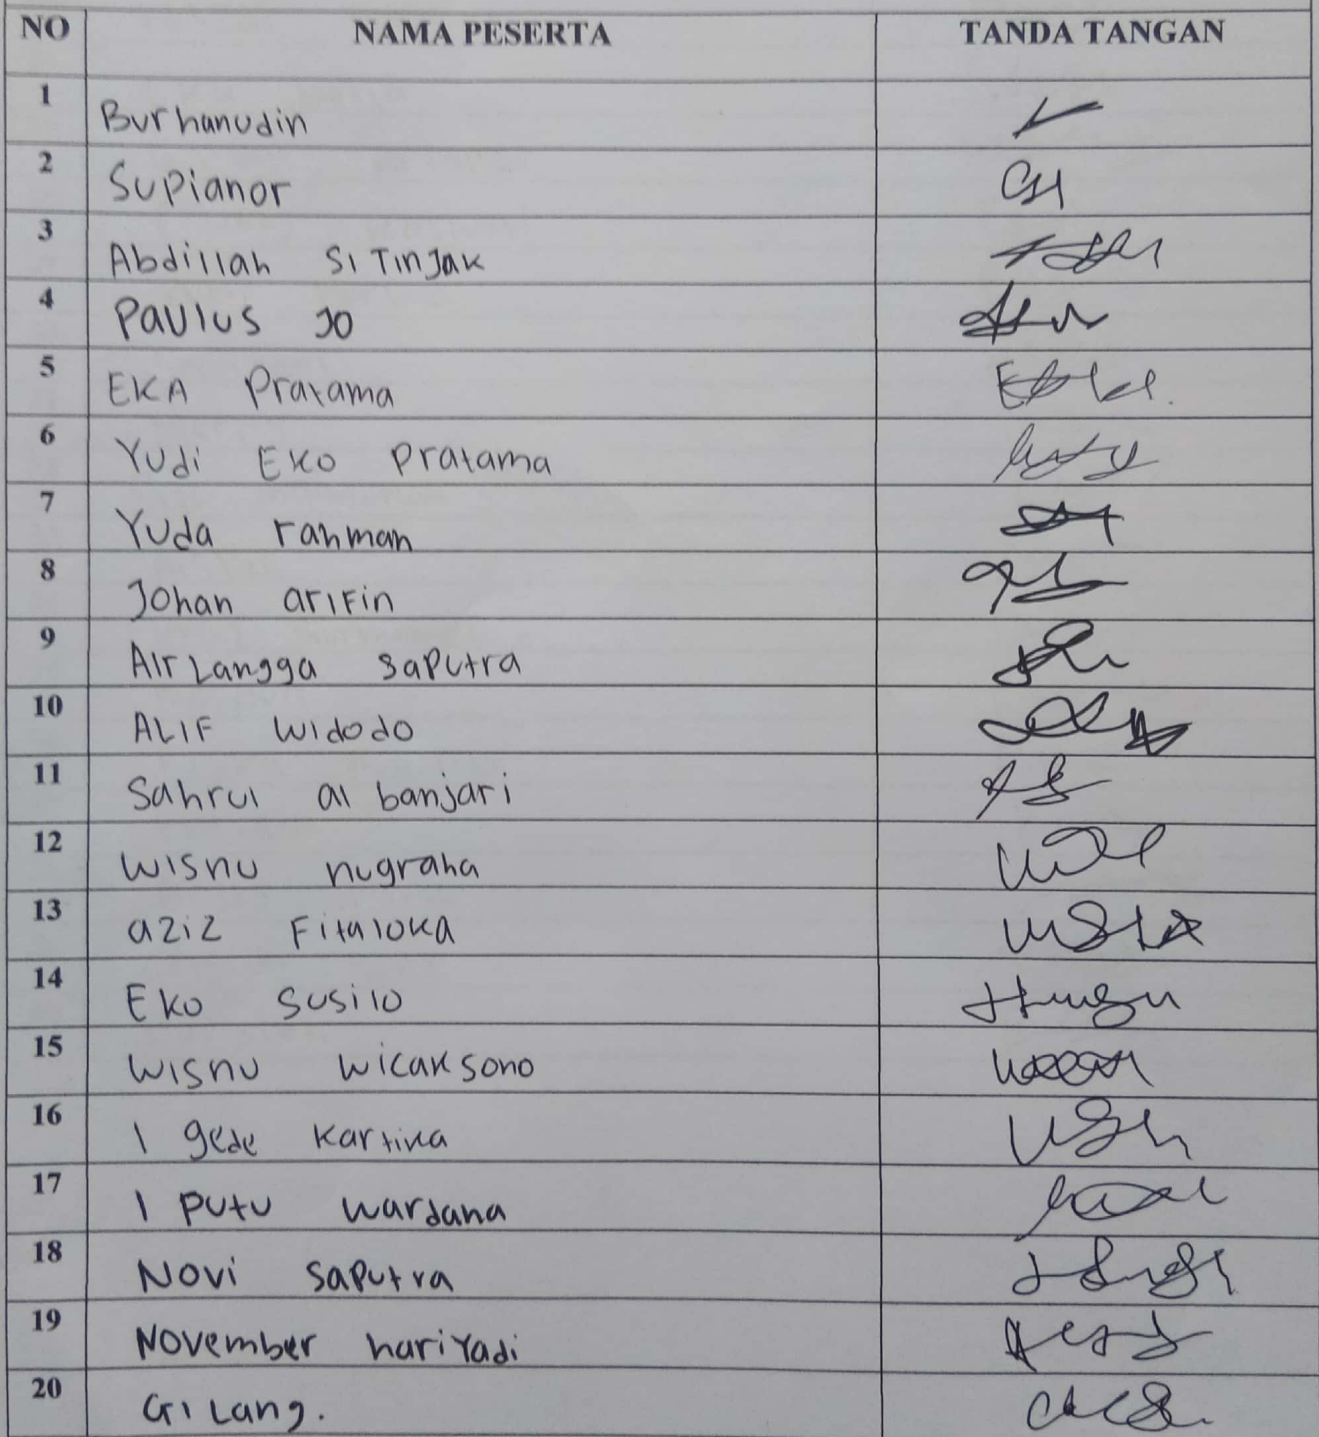 NO NAMA PESERTA TANDA TANGAN
1 Burhanudin
2 Supianor
3 Abdillah SiTinJak
4 Paulus Jo
5 EKA Pratama
6 Yudi Eko Pratama
7 Yuda rahman
8 Johan arifin
9 AirLangga saputra
10 ALIF Widodo
11 Sahrul al banjari
12 Wisnu nugraha
13 aziz Fitaloka
14 Eko Susilo
15 Wisnu Wicaksono
16 I gede Kartika
17 I Putu Wardana
18 Novi Saputra
19 November hariyadi
20 GiLang.